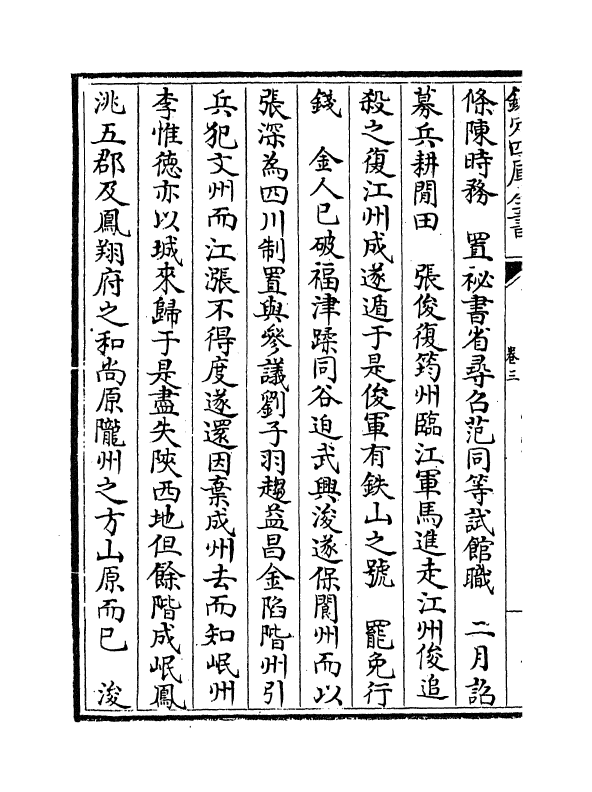 欽定四庫全書
卷三
條陳時務　置祕書省尋召范同等試館職　二月詔
募兵耕閒田　張俊復筠州臨江軍馬進走江州俊追
殺之復江州成遂遁于是俊軍有鉄山之號　罷免行
錢　金人已破福津蹂同谷迫武興浚遂保閬州而以
張深為四川制置與參議劉子羽趨益昌金陷階州引
兵犯文州而江漲不得度遂還因棄成州去而知岷州
李惟德亦以城來歸于是盡失陜西地但餘階成岷鳳
洮五郡及鳳翔府之和尚原隴州之方山原而已　浚